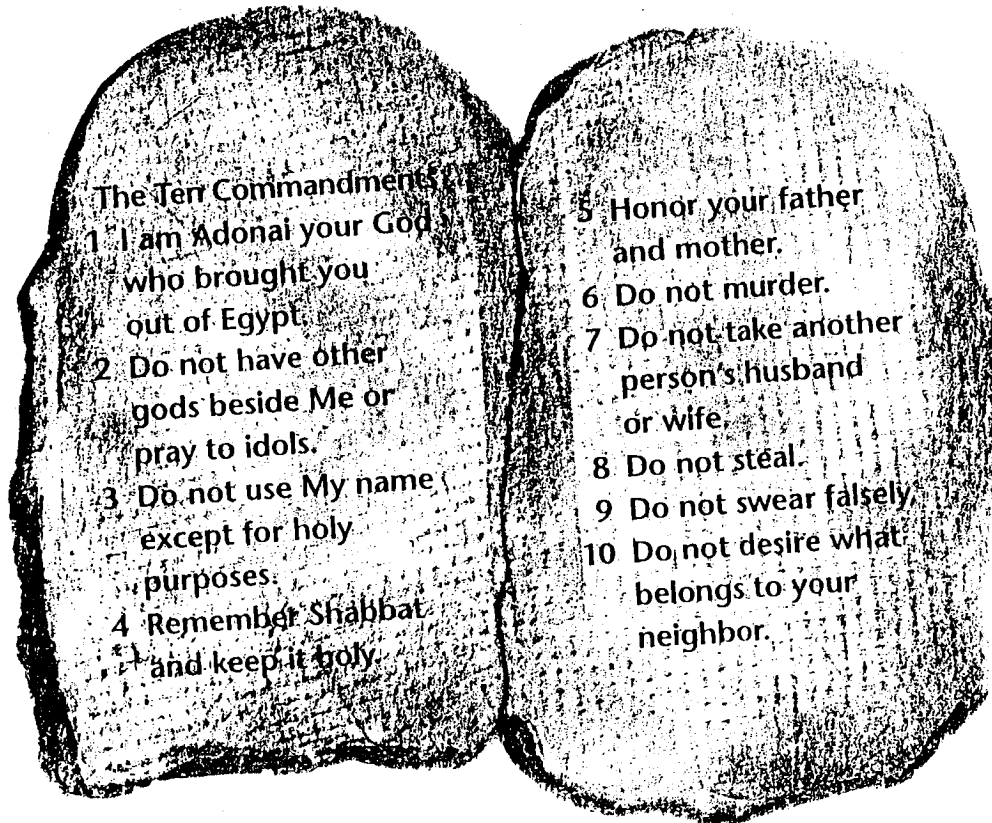 The Ten Commandments
1 I am Adonai your God
who brought you
out of Egypt.
2 Do not have other
gods beside Me or
pray to idols.
3 Do not use My name
except for holy
purposes.
4 Remember Shabbat
and keep it holy.
5 Honor your father
and mother.
6 Do not murder.
7 Do not take another
person's husband
or wife.
8 Do not steal.
9 Do not swear falsely.
10 Do not desire what
belongs to your
neighbor.